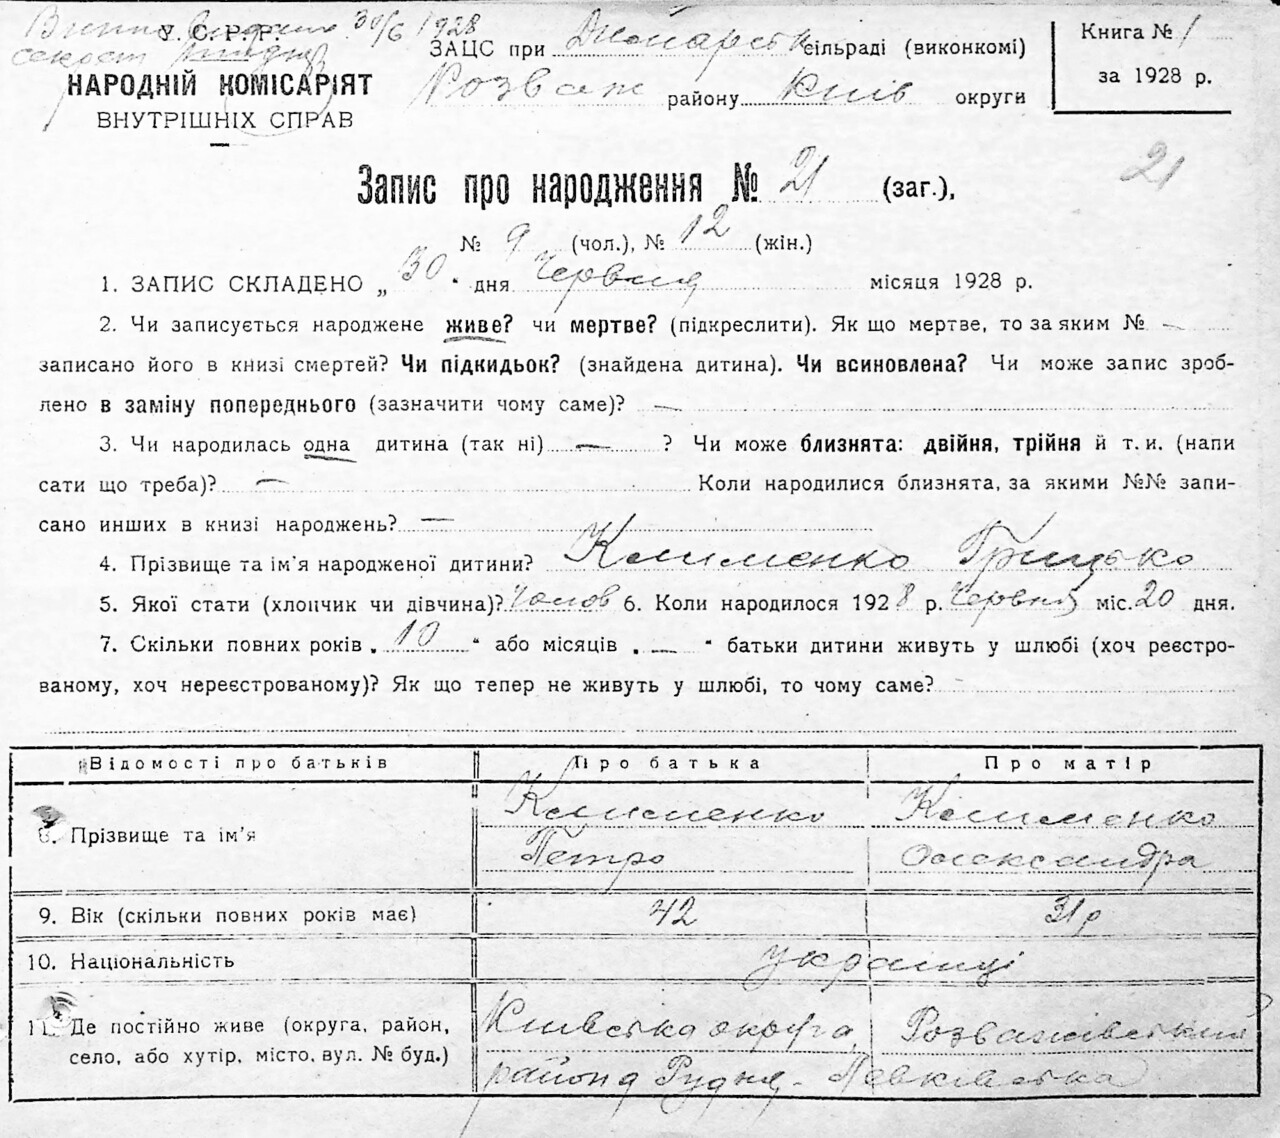 30/6 1928
У. С. Р. Р.
НАРОДНІЙ КОМІСАРІЯТ
ВНУТРІШНІХ СПРАВ
ЗАЦС при сільраді (виконкомі)
Розваж району Київ округи
Книга № 1
за 1928 р.
21
Запис про народження № 21 (заг.),
№ 9 (чол.), № 12 (жін.)
1. ЗАПИС СКЛАДЕНО „ 30 " дня Червня місяця 1928 р.
2. Чи записується народжене живе? чи мертве? (підкреслити). Як що мертве, то за яким № —
записано його в книзі смертей? Чи підкидьок? (знайдена дитина). Чи всиновлена? Чи може запис зроб-
лено в заміну попереднього (зазначити чому саме)? —
3. Чи народилась одна дитина (так ні) — ? Чи може близнята: двійня, трійня й т. и. (напи
сати що треба)? — Коли народилися близнята, за якими №№ запи-
сано инших в книзі народжень? —
4. Прізвище та ім'я народженої дитини? Клименко Грицько
5. Якої стати (хлопчик чи дівчина)? Чолов 6. Коли народилося 1928 р. Червня міс. 20 дня.
7. Скільки повних років „ 10 " або місяців „ — " батьки дитини живуть у шлюбі (хоч реєстро-
ваному, хоч нереєстрованому)? Як що тепер не живуть у шлюбі, то чому саме? —
Відомості про батьків Про батька Про матір
8. Прізвище та ім'я Клименко Петро Клименко Олександра
9. Вік (скільки повних років має) 42 31 р
10. Національність українці
11. Де постійно живе (округа, район, Київська округа, Розважівський
село, або хутір, місто, вул. № буд.) район д Рудня-Левківська